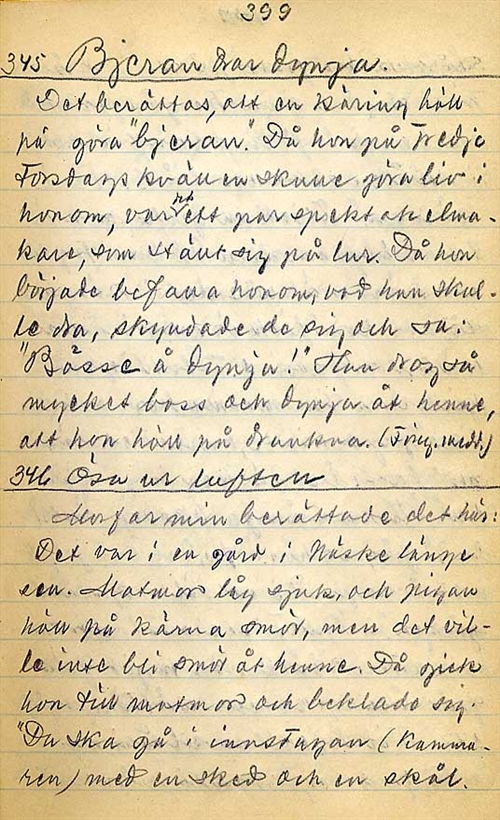 399
345 Bjeran drar dynja.
Det berättas, att en käring höll
på göra "bjeran". Då hon på tredje
Torsdagskvällen skulle göra liv i
honom, var det ett par spektakelma-
kare, som ställt sig på lur. Då hon
började befalla honom, vad han skul-
le dra, skyndade de sig och sa:
"Båsse å dynja!" Han drog så
mycket boss och dynja åt henne,
att hon höll på drunkna. (Föreg. medd.)
346 Ösa ur luften
Morfar min berättade det här:
Det var i en gård i Näske länge
sen. Matmor låg sjuk, och pigan
höll på kärna smör, men det vil-
le inte bli smör åt henne. Då gick
hon till matmor och beklada sig.
"Du ska gå i innstugan (kamma-
ren) med en sked och en skål.